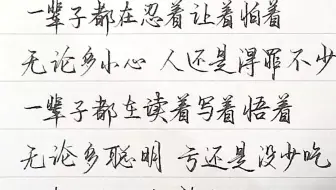 一辈子都在忍着让着怕着
无论多小心 人还是得罪不少
一辈子都在读着写着悟着
无论多聪明 亏还是没少吃